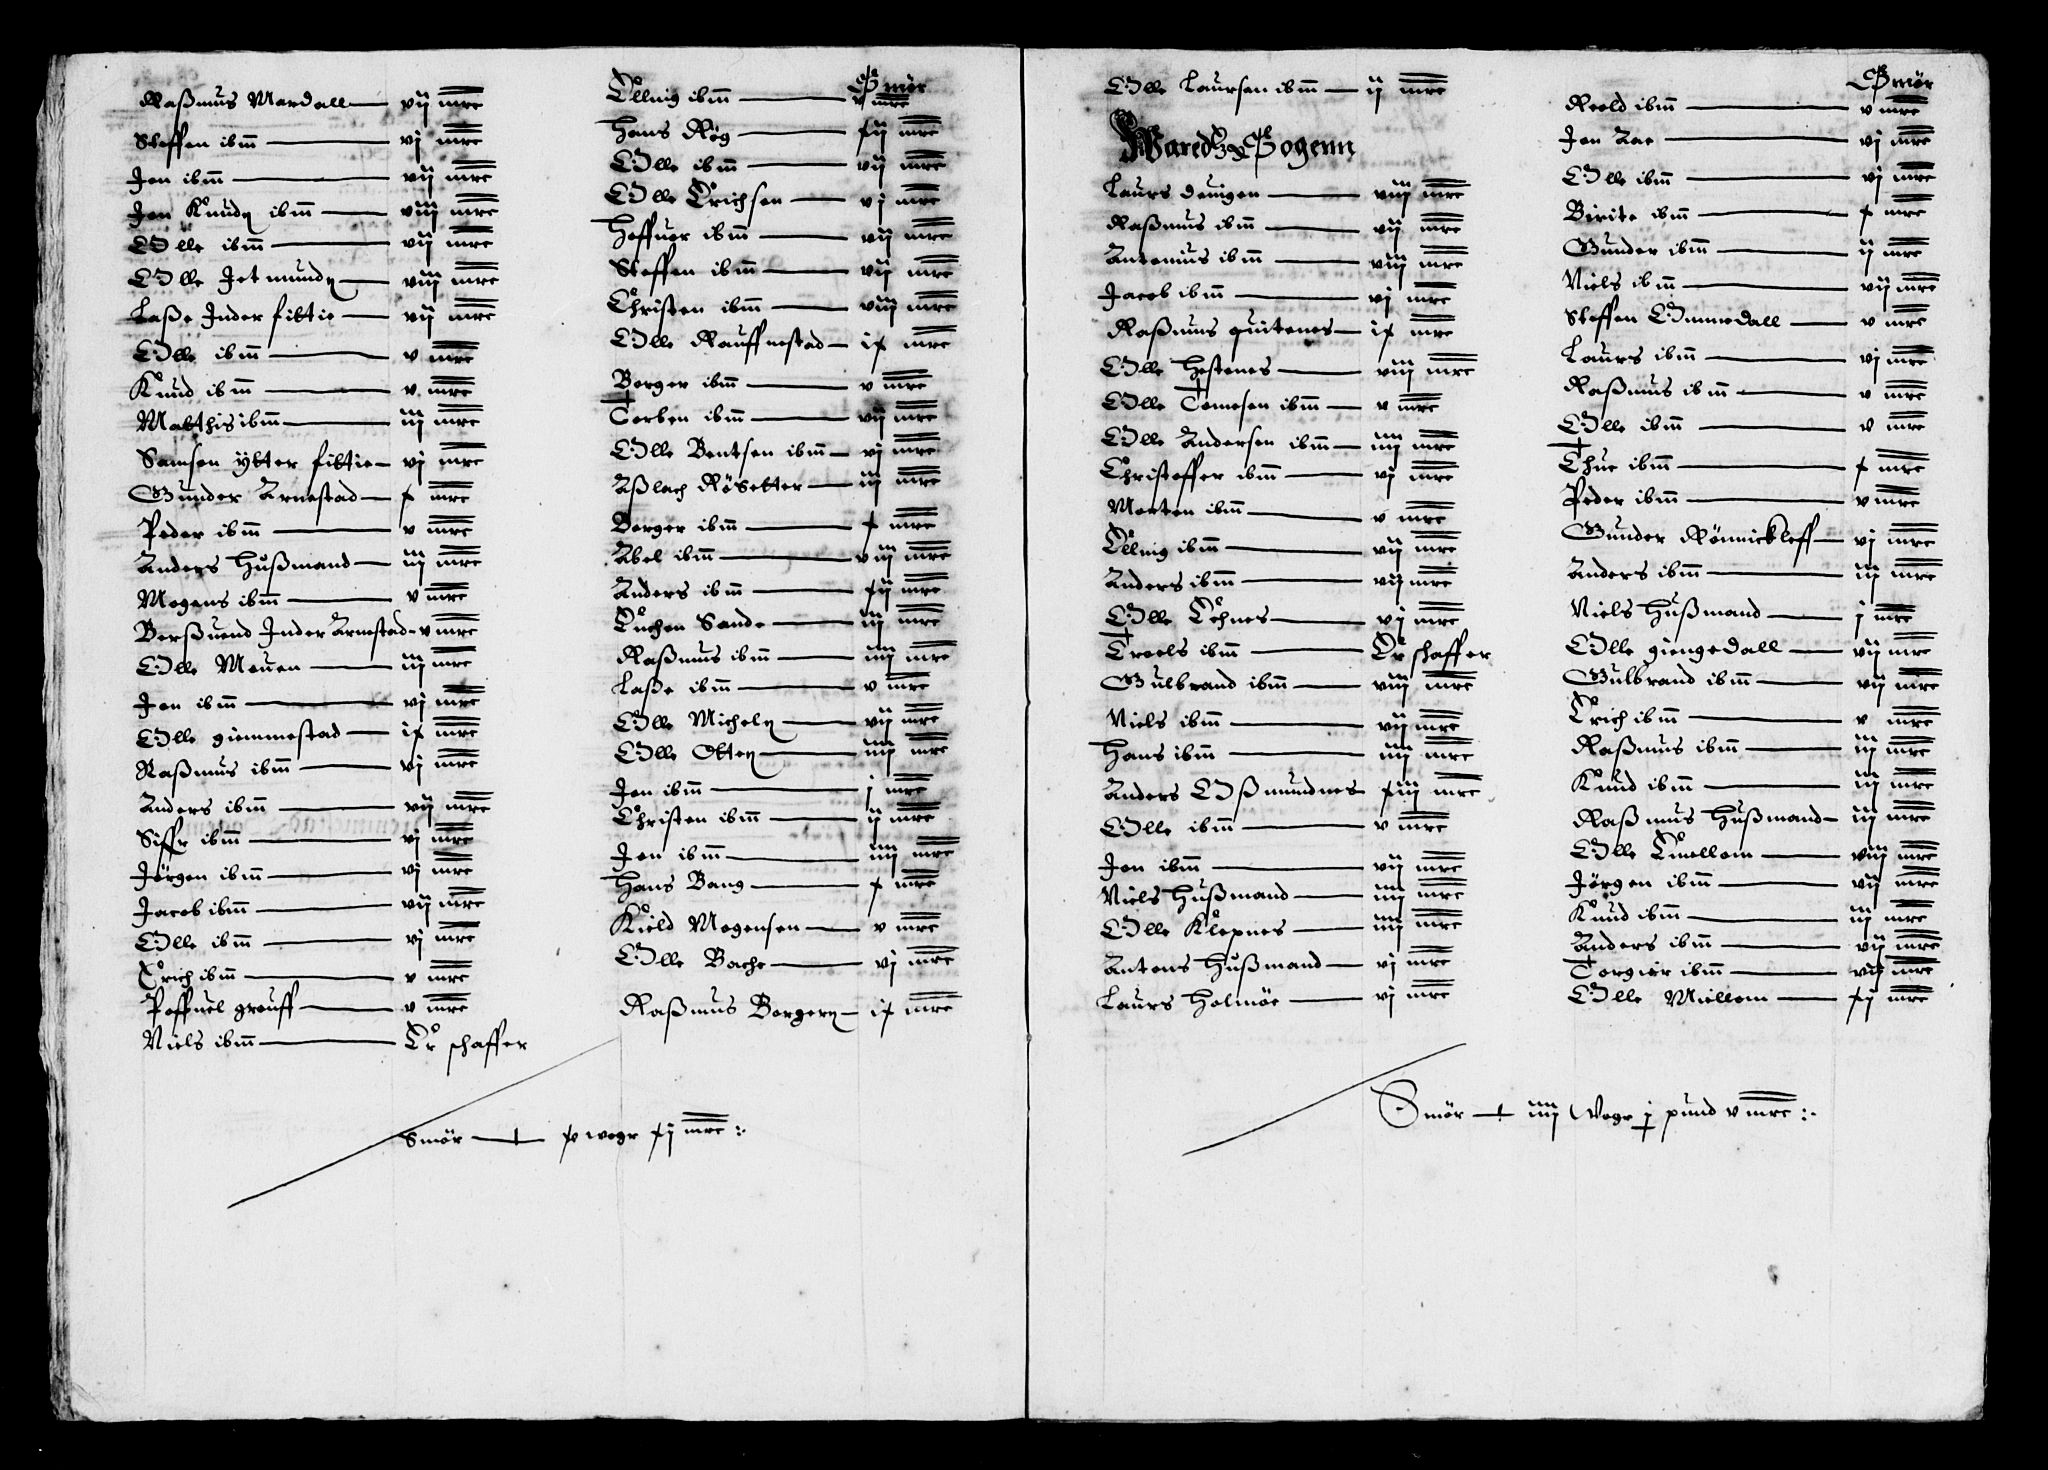 Raßmus Mardall — vij mrc
Steffen ibm — vj mrc
Jon ibm — vij mrc
Jon Knudz ibm — viij mrc
Olle ibm — vij mrc
Olle Jetmundz — viij mrc
Laße Inder fittie — vij mrc
Olle ibm — v mrc
Knud ibm — v mrc
Matthis ibm — iij mrc
Samson ytter fittie — vj mrc
Gunder Arnestad — x mrc
Peder ibm — v mrc
Anders Hußmand — iij mrc
Mogens ibm — v mrc
Berßuend Inder Arnestad — v mrc
Olle Meuen — iij mrc
Jon ibm — vj mrc
Olle giemmestad — ix mrc
Raßmus ibm — vj mrc
Anders ibm — vij mrc
Siffr ibm — vj mrc
Jørgen ibm — vj mrc
Jacob ibm — vij mrc
Olle ibm — vj mrc
Erich ibm — v mrc
Poffuel grouff — v mrc
Niels ibm — Er schaffer
Smør
Ellnig ibm — v mrc
Hans Røg — xij mrc
Olle ibm — vij mrc
Olle Erichsen — vj mrc
Hoffuor ibm — vij mrc
Steffen ibm — vij mrc
Christen ibm — viij mrc
Olle Rauffnestad — ix mrc
Borger ibm — v mrc
Torben ibm — vij mrc
Olle Bentsen ibm — vj mrc
Aßlach Røsetter — iij mrc
Borger ibm — x mrc
Abel ibm — viij mrc
Anders ibm — xij mrc
Euchen Sande — iij mrc
Raßmus ibm — iiij mrc
Laße ibm — v mrc
Olle Michelz — vij mrc
Olle Ottez — iiij mrc
Jon ibm — j mrc
Christen ibm — ij mrc
Jon ibm — iiij mrc
Hans Bang — x mrc
Kield Mogensen — v mrc
Olle Bache — vj mrc
Raßmus Borgerz — ix mrc
Smør — xv wogr xij mrc
Olle Laursen ibm — ij mrc
Waredz Sogenn
Laurs deuigen — viij mrc
Raßmus ibm — vij mrc
Antonius ibm — viij mrc
Jacob ibm — vj mrc
Raßmus quitenes — ix mrc
Olle Hestenes — viij mrc
Olle Tomesen ibm — v mrc
Olle Andersen ibm — iiij mrc
Christoffer ibm — vj mrc
Morten ibm — v mrc
Ellnig ibm — vij mrc
Anders ibm — vij mrc
Olle Ethnes — vj mrc
Troels ibm — Er schaffer
Gulbrand ibm — viij mrc
Niels ibm — vij mrc
Hans ibm — iiij mrc
Anders Oßmundnes — xiij mrc
Olle ibm — v mrc
Jon ibm — vij mrc
Niels Hußmand — iiij mrc
Olle Klepnes — iiij mrc
Antons Hußmand — vj mrc
Laurs Holmøe — vj mrc
Smør
Roold ibm — v mrc
Jon Aae — vj mrc
Olle ibm — vj mrc
Birite ibm — x mrc
Gunder ibm — ij mrc
Niels ibm — vij mrc
Steffen Ommedall — v mrc
Laurs ibm — vj mrc
Raßmus ibm — v mrc
Olle ibm — v mrc
Thue ibm — x mrc
Peder ibm — v mrc
Gunder Rønnickleff — vj mrc
Anders ibm — iij mrc
Niels Hußmand — j mrc
Olle giengedall — vij mrc
Gulbrand ibm — vij mrc
Erich ibm — v mrc
Raßmus ibm — iij mrc
Knud ibm — iij mrc
Raßmus Hußmand — iij mrc
Olle Emellem — viij mrc
Jørgen ibm — vij mrc
Knud ibm — iij mrc
Anders ibm — vij mrc
Torgier ibm — vij mrc
Olle Miellem — xij mrc
Smør — iiij Wogr j pund v mrc